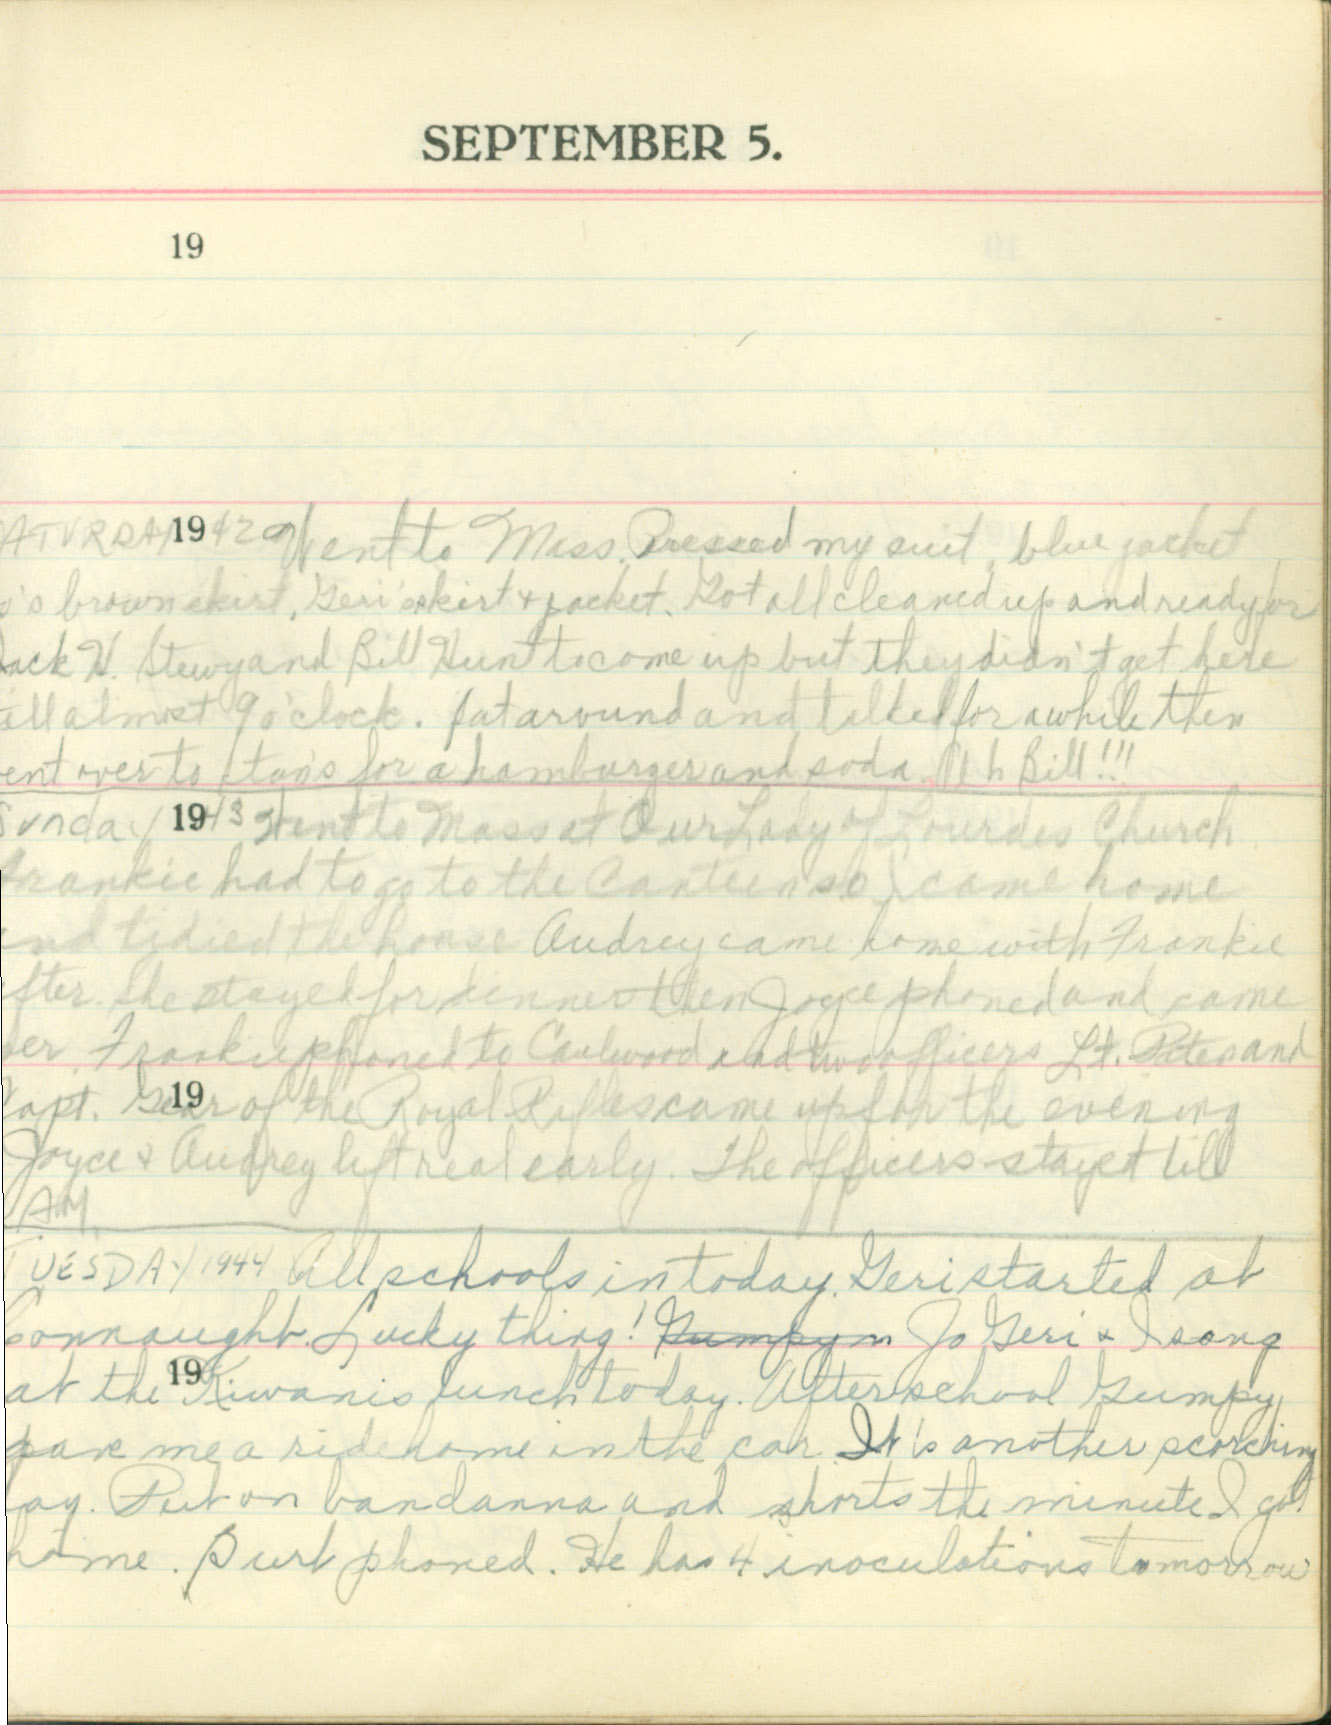 SEPTEMBER 5.
19
ATURDAY 1942 Went to Mass. Pressed my suit, blue jacket,
o's brown skirt, Geri's skirt & jacket. Got all cleaned up and ready for
Jack H. Stewy and Bill Hunt to come up but they didn't get here
till almost 9 o'clock. Sat around and talked for awhile then
ent over to Stan's for a hamburger and soda. Ah Bill!!!
Sunday 1943 Went to Mass at Our Lady of Lourdes Church.
Frankie had to go to the Canteen so I came home
and tidied the house Audrey came home with Frankie
fter. She stayed for dinner then Joyce phoned and came
er. Frankie phoned to and two officers Lt. and
Capt. of the Royal Rifles came up for the evening
19
Joyce & Audrey left real early. The officers stayed till
AM
TUESDAY 1944 All schools in today. Geri started at
Connaught. Lucky thing! Gumpy m Jo Geri & I sang
at the Kiwanis lunch today. After school Gumpy
19
gave me a ride home in the car. It's another scorching
ay. Put on bandanna and shorts the minute I got
home. Burt phoned. He has 4 inoculations tomorrow